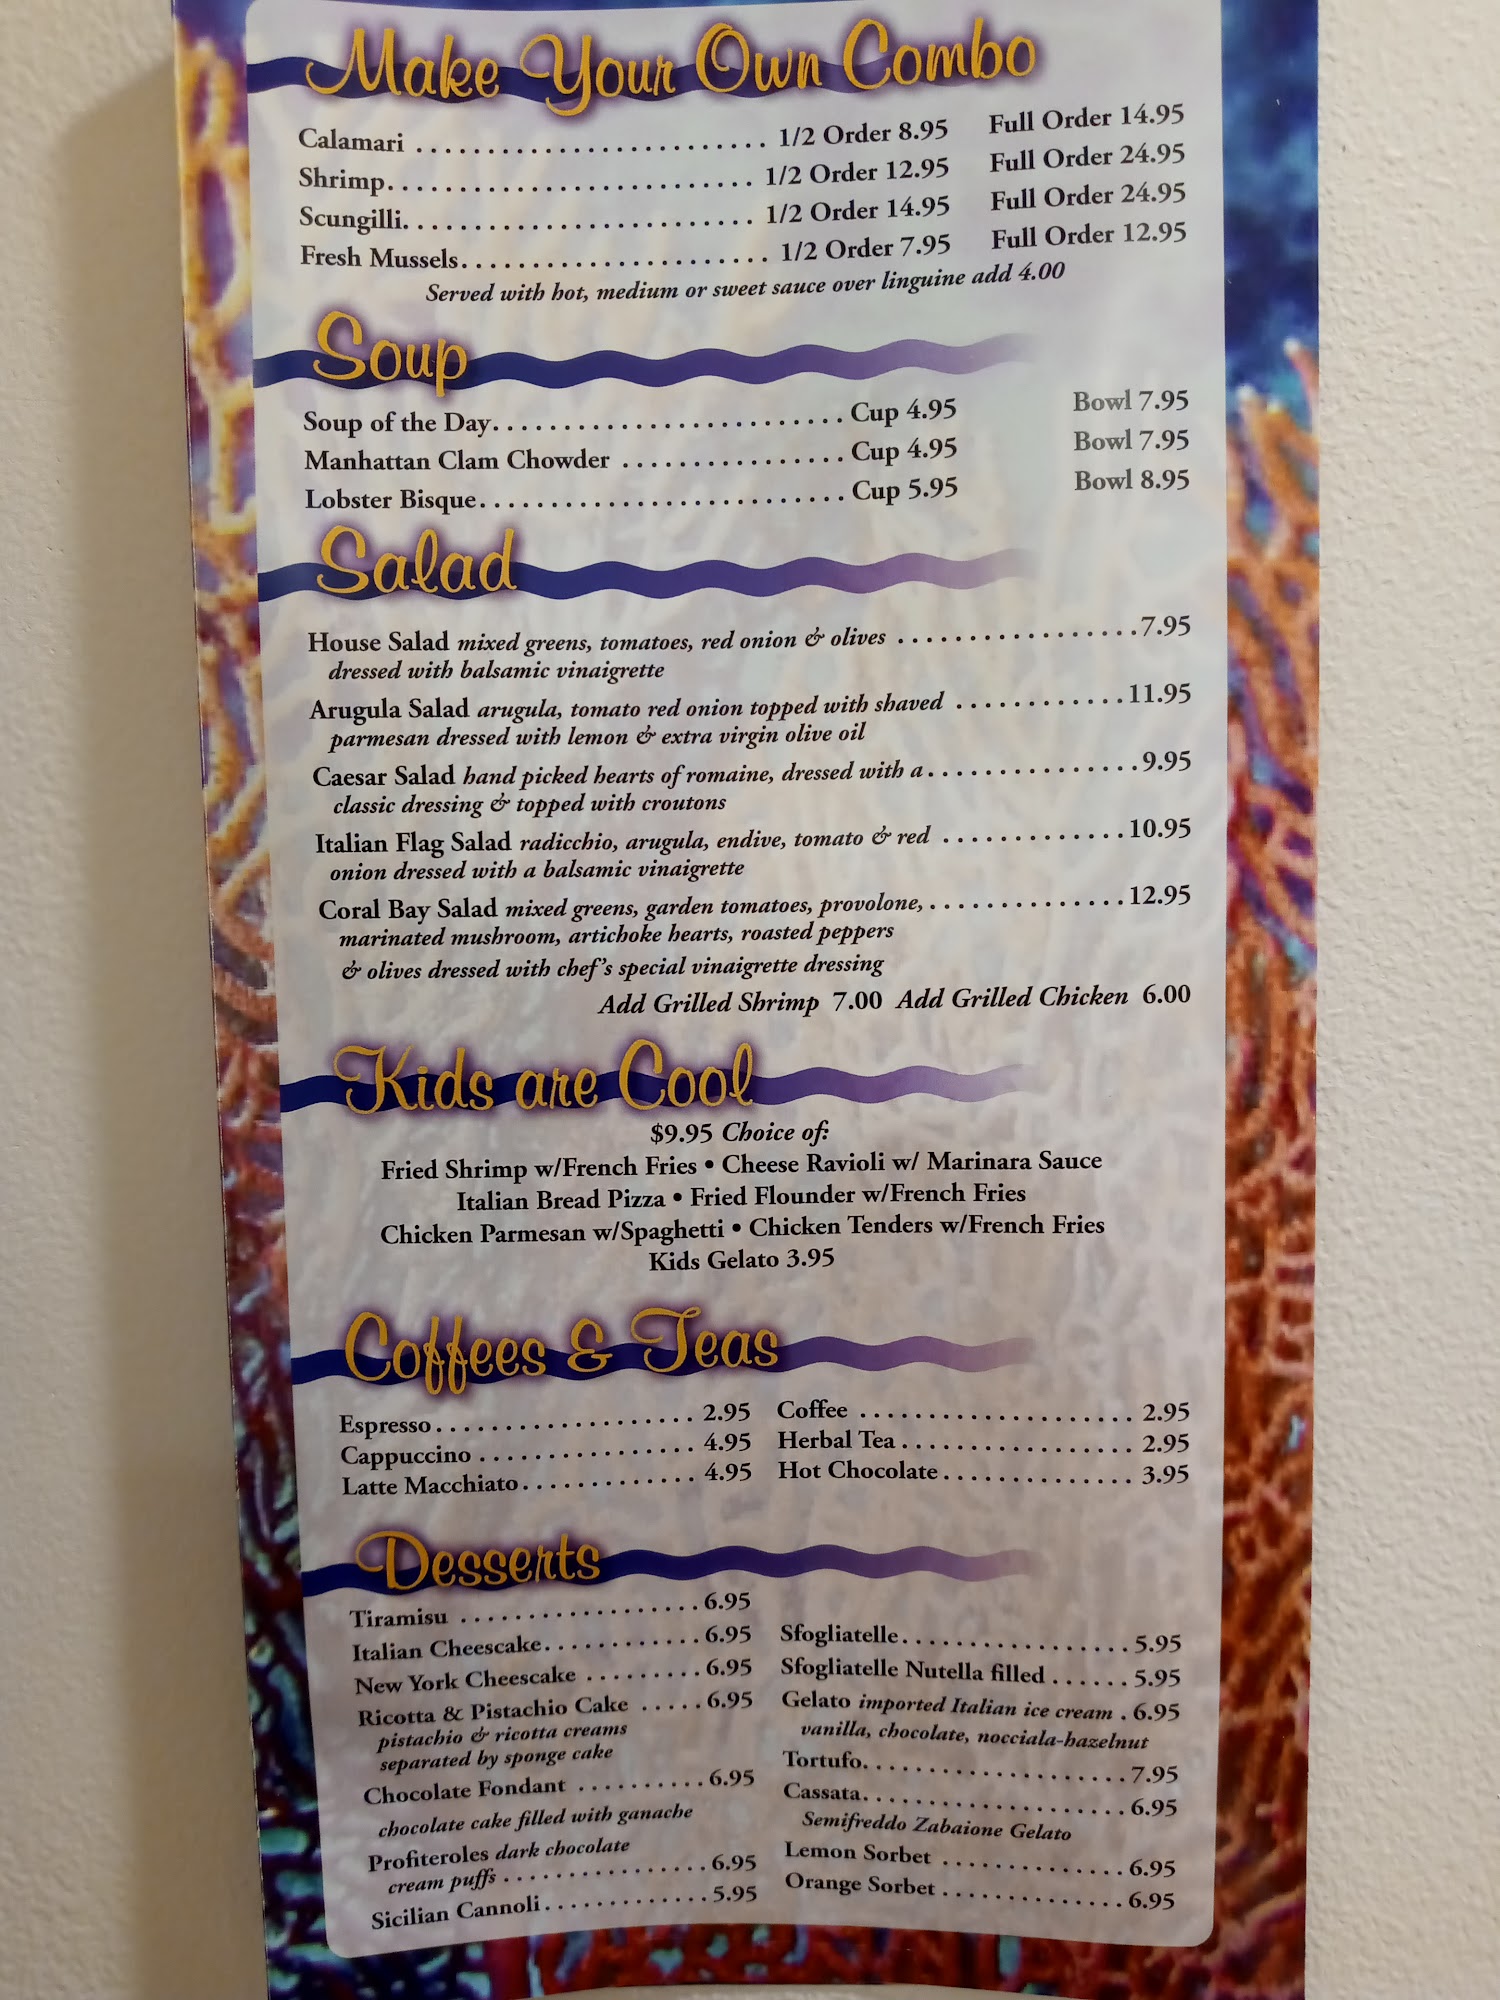 Make Your Own Combo
Calamari ........................ 1/2 Order 8.95 Full Order 14.95
Shrimp.......................... 1/2 Order 12.95 Full Order 24.95
Scungilli........................ 1/2 Order 14.95 Full Order 24.95
Fresh Mussels...................... 1/2 Order 7.95 Full Order 12.95
Served with hot, medium or sweet sauce over linguine add 4.00
Soup
Soup of the Day......................... Cup 4.95 Bowl 7.95
Manhattan Clam Chowder ................ Cup 4.95 Bowl 7.95
Lobster Bisque.......................... Cup 5.95 Bowl 8.95
Salad
House Salad mixed greens, tomatoes, red onion & olives .................7.95
dressed with balsamic vinaigrette
Arugula Salad arugula, tomato red onion topped with shaved ............11.95
parmesan dressed with lemon & extra virgin olive oil
Caesar Salad hand picked hearts of romaine, dressed with a...............9.95
classic dressing & topped with croutons
Italian Flag Salad radicchio, arugula, endive, tomato & red .............10.95
onion dressed with a balsamic vinaigrette
Coral Bay Salad mixed greens, garden tomatoes, provolone, ..............12.95
marinated mushroom, artichoke hearts, roasted peppers
& olives dressed with chef's special vinaigrette dressing
Add Grilled Shrimp 7.00 Add Grilled Chicken 6.00
Kids are Cool
$9.95 Choice of:
Fried Shrimp w/French Fries • Cheese Ravioli w/ Marinara Sauce
Italian Bread Pizza • Fried Flounder w/French Fries
Chicken Parmesan w/Spaghetti • Chicken Tenders w/French Fries
Kids Gelato 3.95
Coffees & Teas
Espresso.................. 2.95
Cappuccino ............... 4.95
Latte Macchiato............ 4.95
Coffee ................... 2.95
Herbal Tea................ 2.95
Hot Chocolate............. 3.95
Desserts
Tiramisu .................6.95
Italian Cheescake...........6.95
New York Cheescake ........6.95
Ricotta & Pistachio Cake .....6.95
pistachio & ricotta creams
separated by sponge cake
Chocolate Fondant .........6.95
chocolate cake filled with ganache
Profiteroles dark chocolate
cream puffs ..............6.95
Sicilian Cannoli............5.95
Sfogliatelle................5.95
Sfogliatelle Nutella filled ......5.95
Gelato imported Italian ice cream . 6.95
vanilla, chocolate, nocciala-hazelnut
Tortufo...................7.95
Cassata...................6.95
Semifreddo Zabaione Gelato
Lemon Sorbet .............6.95
Orange Sorbet .............6.95